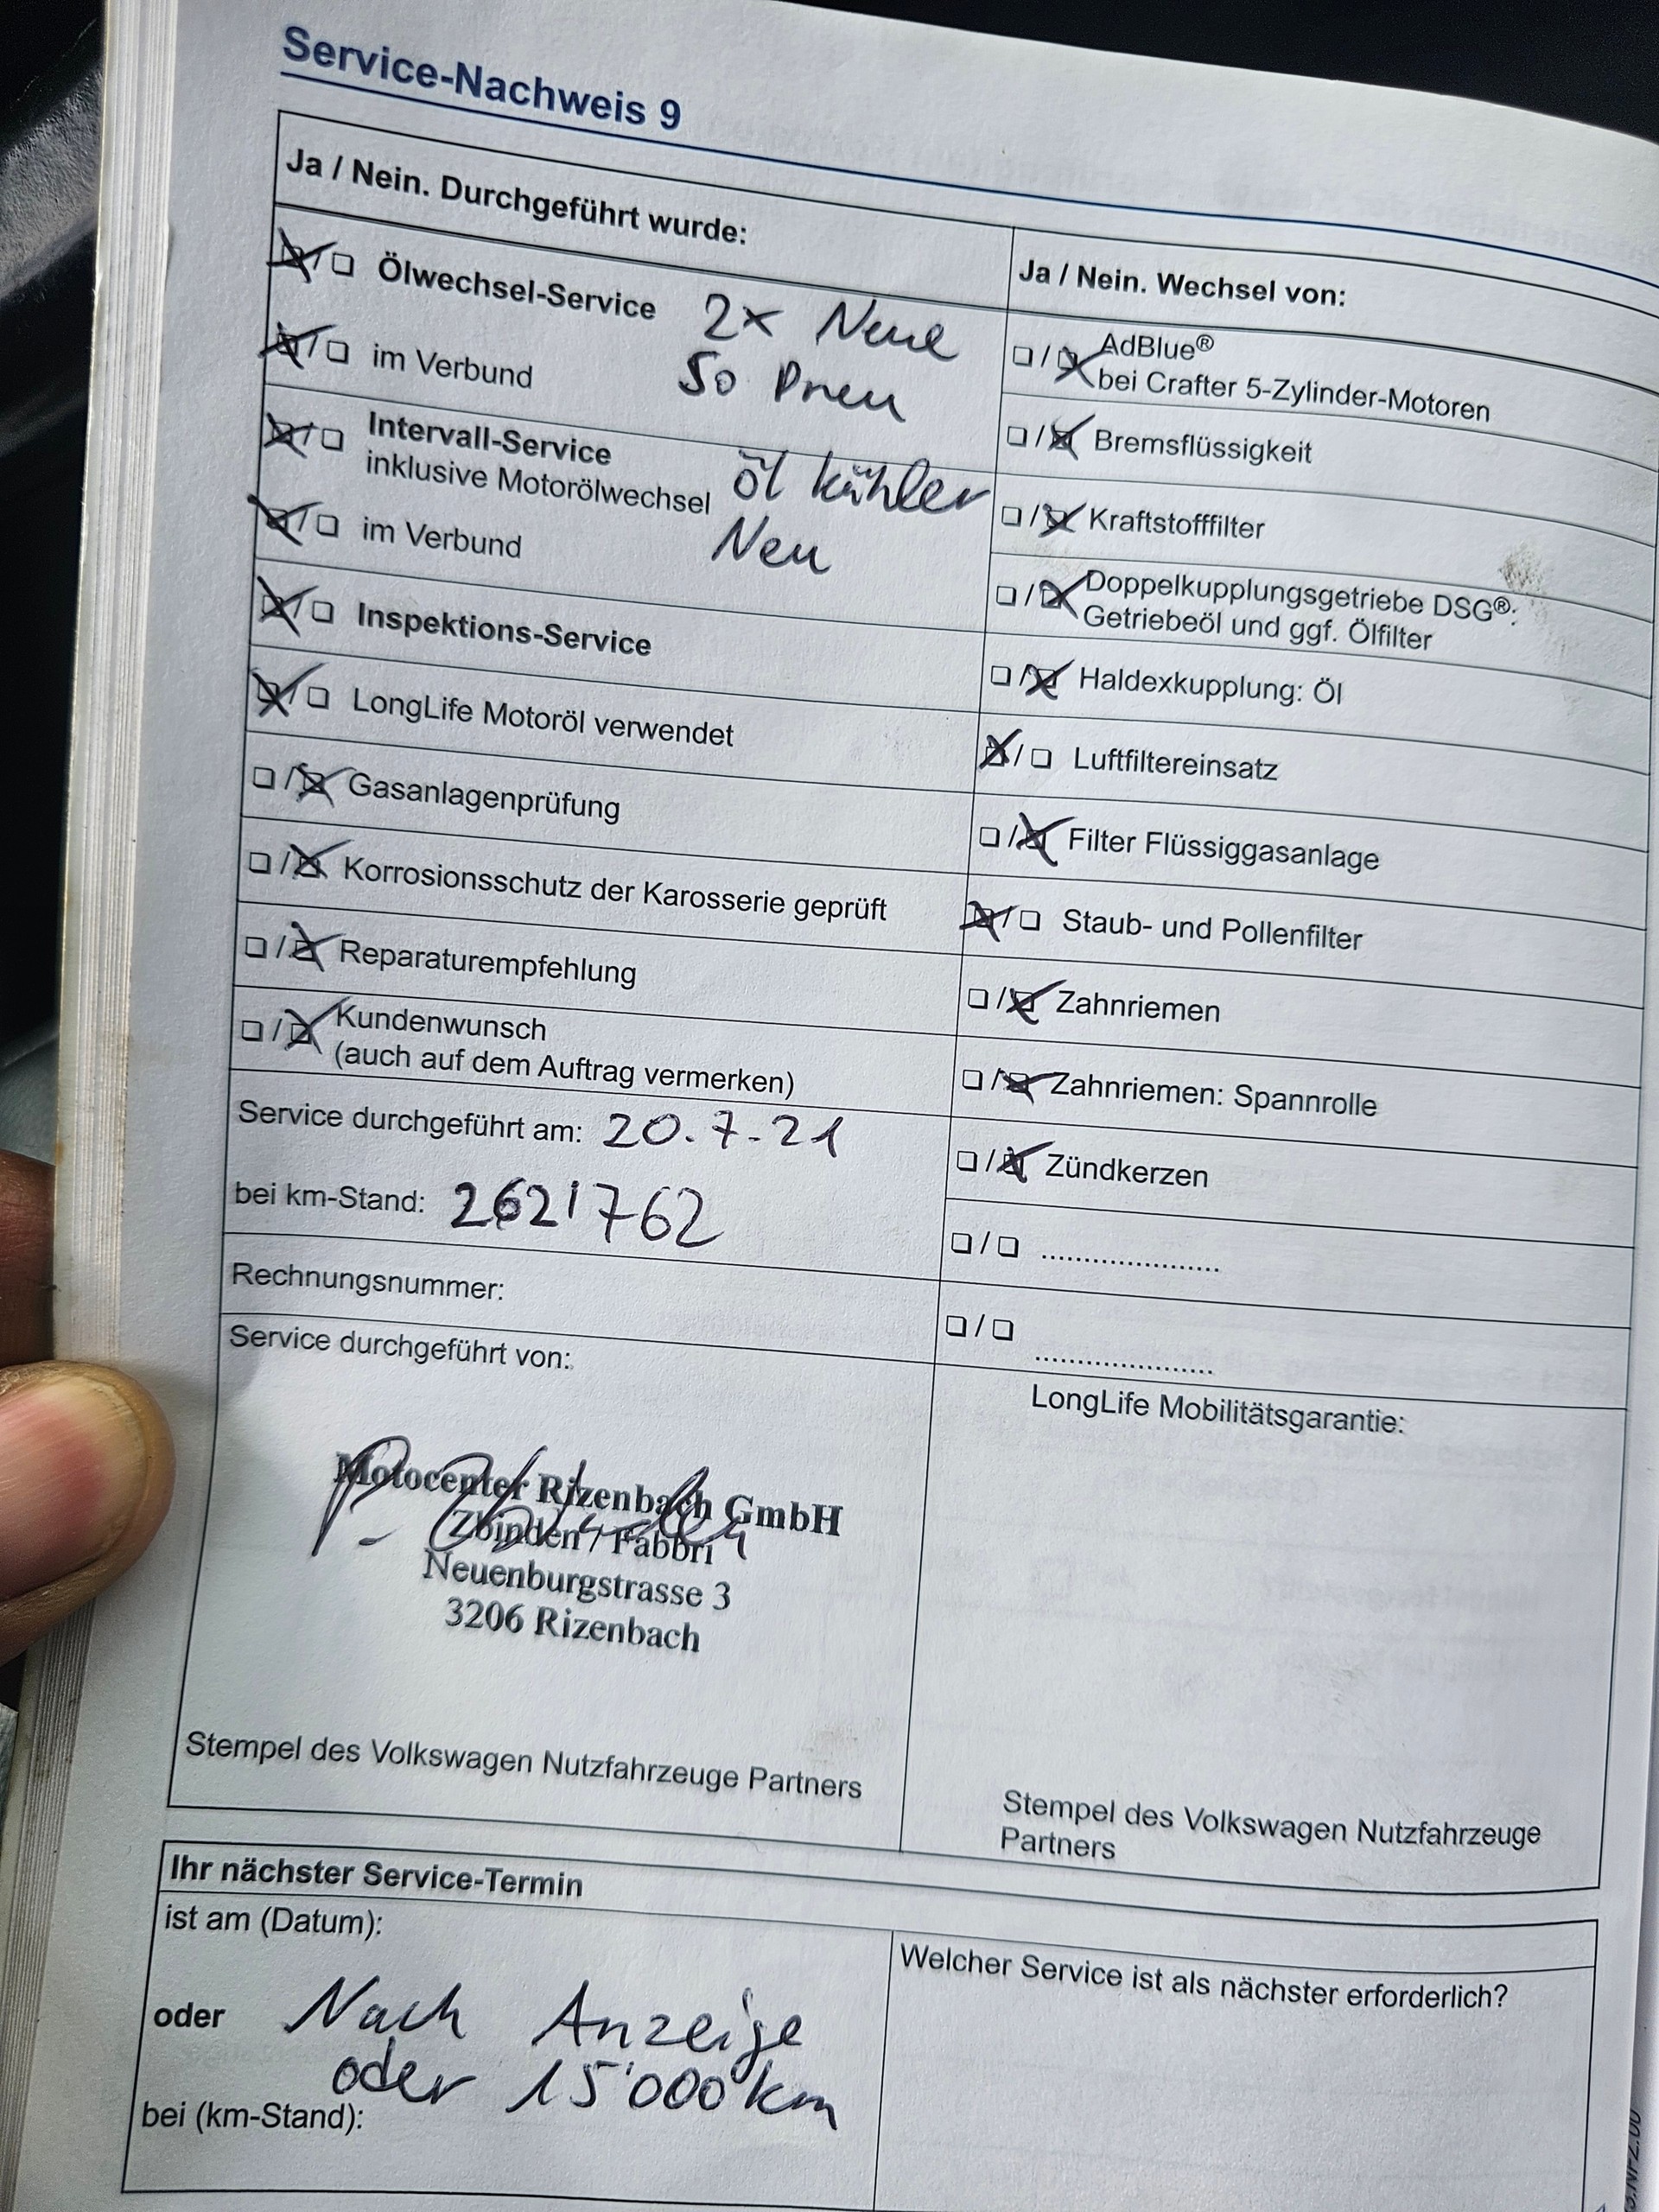 Service-Nachweis 9
Ja / Nein. Durchgeführt wurde:
☒/☐ Ölwechsel-Service 2x Neue
☒/☐ im Verbund So Pneu
☒/☐ Intervall-Service
inklusive Motorölwechsel öl kühler
☒/☐ im Verbund Neu
☒/☐ Inspektions-Service
☒/☐ LongLife Motoröl verwendet
☐/☒ Gasanlagenprüfung
☐/☒ Korrosionsschutz der Karosserie geprüft
☐/☒ Reparaturempfehlung
☐/☒ Kundenwunsch
(auch auf dem Auftrag vermerken)
Service durchgeführt am: 20.7-21
bei km-Stand: 2621762
Rechnungsnummer:
Service durchgeführt von:
Motocenter Rizenbach GmbH
Zbinden / Fabbri
Neuenburgstrasse 3
3206 Rizenbach
Stempel des Volkswagen Nutzfahrzeuge Partners
Ja / Nein. Wechsel von:
☐/☒ AdBlue®
bei Crafter 5-Zylinder-Motoren
☐/☒ Bremsflüssigkeit
☐/☒ Kraftstofffilter
☐/☒ Doppelkupplungsgetriebe DSG®:
Getriebeöl und ggf. Ölfilter
☐/☒ Haldexkupplung: Öl
☒/☐ Luftfiltereinsatz
☐/☒ Filter Flüssiggasanlage
☒/☐ Staub- und Pollenfilter
☐/☒ Zahnriemen
☐/☒ Zahnriemen: Spannrolle
☐/☒ Zündkerzen
☐/☐ ......................
☐/☐ ......................
LongLife Mobilitätsgarantie:
Stempel des Volkswagen Nutzfahrzeuge
Partners
Ihr nächster Service-Termin
ist am (Datum):
oder Nach Anzeige
oder 15'000 km
bei (km-Stand):
Welcher Service ist als nächster erforderlich?